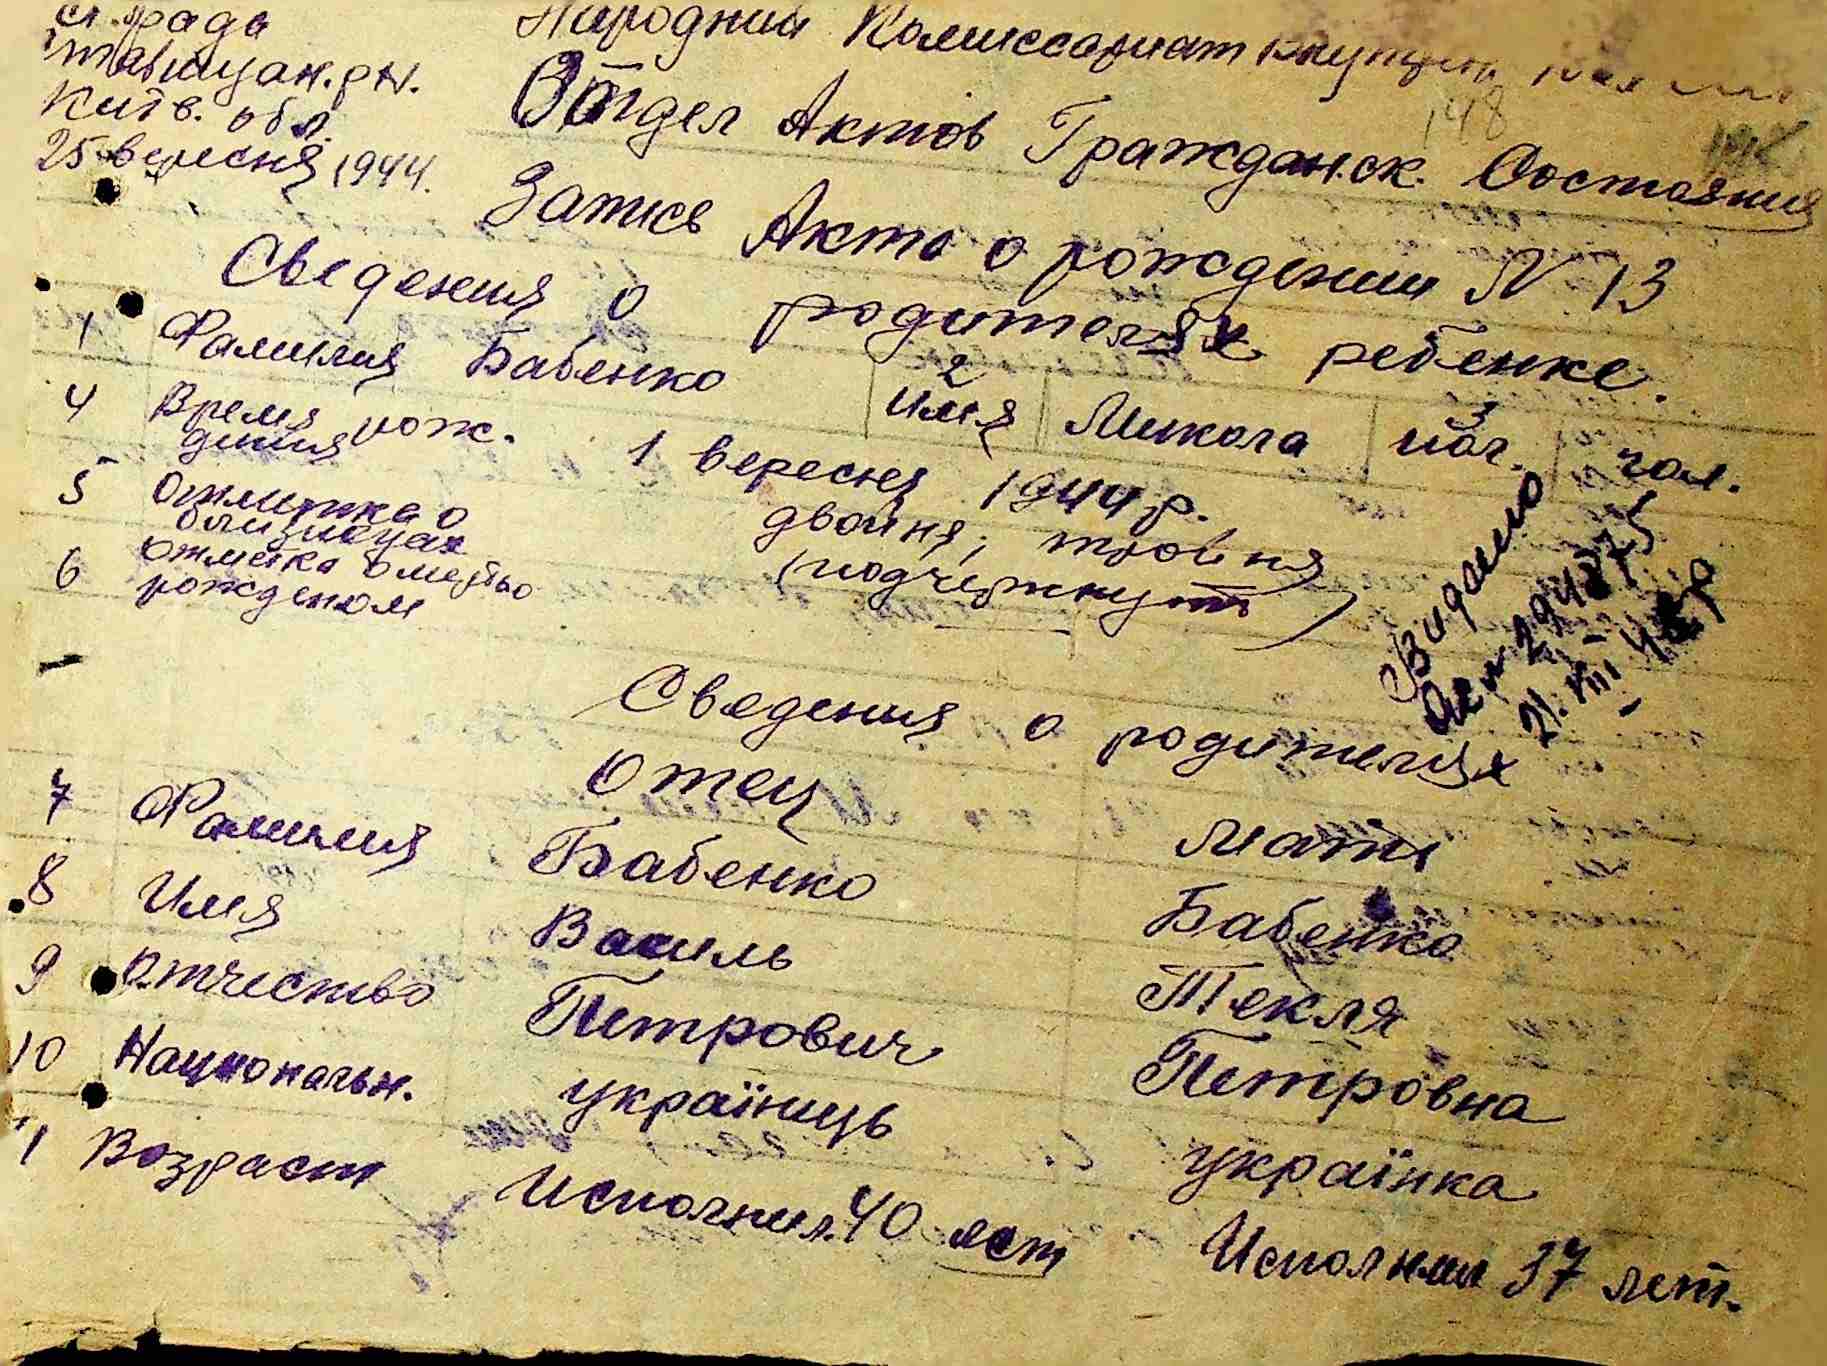 рада
Ставищан. рн.
Київ. обл.
25 вересня 1944.
Народний Комиссариат внутрен.
148
Отдел Актов Гражданск. Состояния
Запись Акта о рождении N 13
Сведения о родителях ребенке.
1 Фамилия Бабенко 2 имя Микола 3 пол. чол.
4 Время рож. дения 1 вересня 1944 р.
5 отметка о близнецах двойня, тройня (подчеркнуть)
6 отметка о мертво рожденом
Видано
294875
21. VIII
Сведения о родителях
Отец мати
7 Фамилия Бабенко Бабенко
8 Имя Василь Текля
9 отчество Петрович Петровна
10 Национальн. українець українка
11 Возраст Исполнил. 40 лет Исполнил 37 лет.